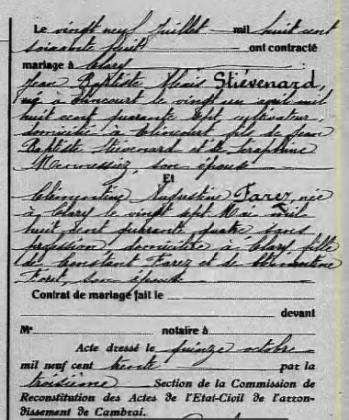 Le vingt neuf Juillet mil huit cent
soixante huit ont contracté
mariage à Clary
Jean Baptiste Stiévenard,
né à Elincourt le vingt un avril mil
huit cent quarante sept cultivateur
domicilié à Elincourt fils de Jean
Baptiste Stiévenard et de Séraphine
son épouse
Et
Clémentine Augustine Farez, née
à Clary le vingt sept Mai mil
huit cent quarante quatre sans
profession domiciliée à Clary fille
de Constant Farez et de Clémentine
son épouse
Contrat de mariage fait le
devant
Me notaire à
Acte dressé le quinze octobre
mil neuf cent trente par la
troisième Section de la Commission de
Reconstitution des Actes de l'Etat-Civil de l'arron-
dissement de Cambrai.